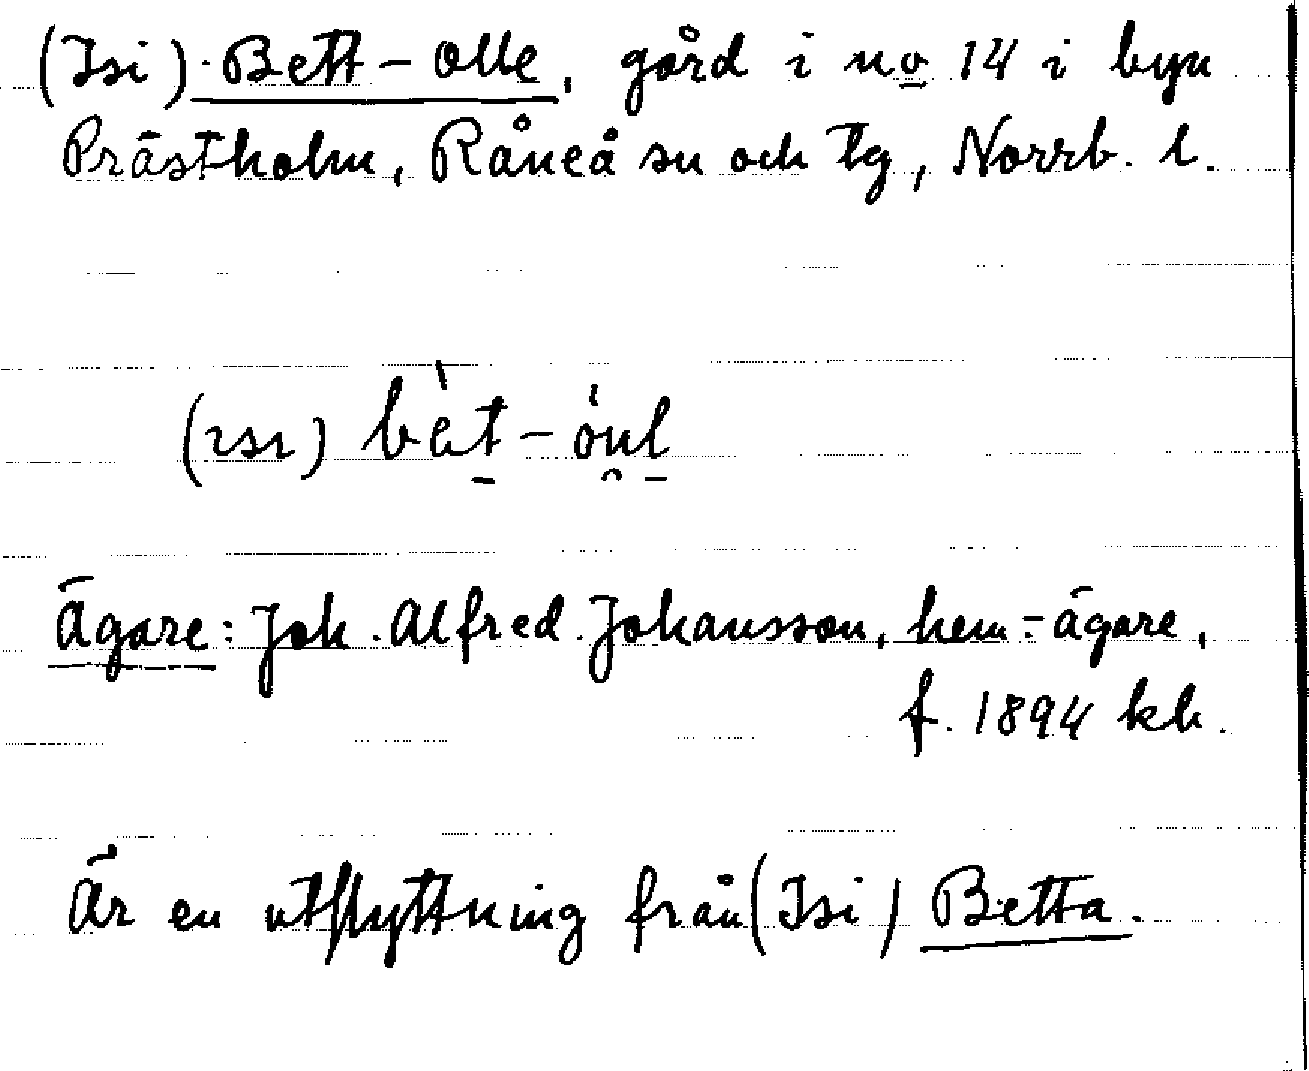 (Isi) Bett-Olle, gård i no 14 i byn
Prästholm, Råneå sn och tg, Norrb. l.
(ısı) bèt-óul
Ägare: Joh. Alfred Johansson, hem.-ägare,
f. 1894 kb.
Är en utflyttning från (Isi) Betta.